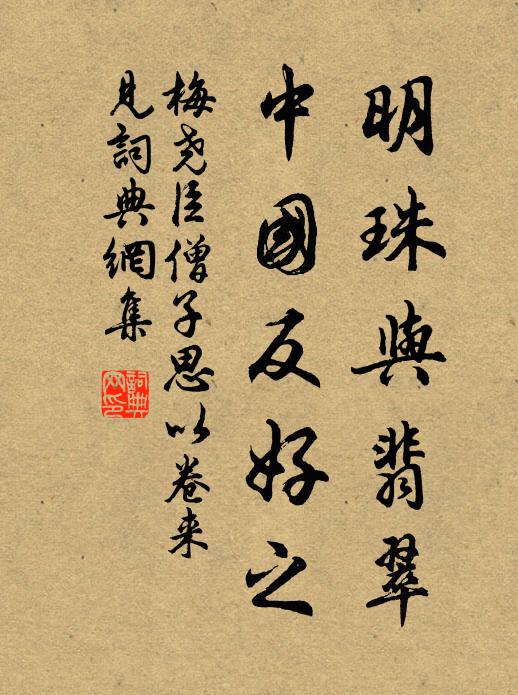 明珠與翡翠
中國反好之
梅尧臣僧子思以卷来
見詞典網集
詞典
网印